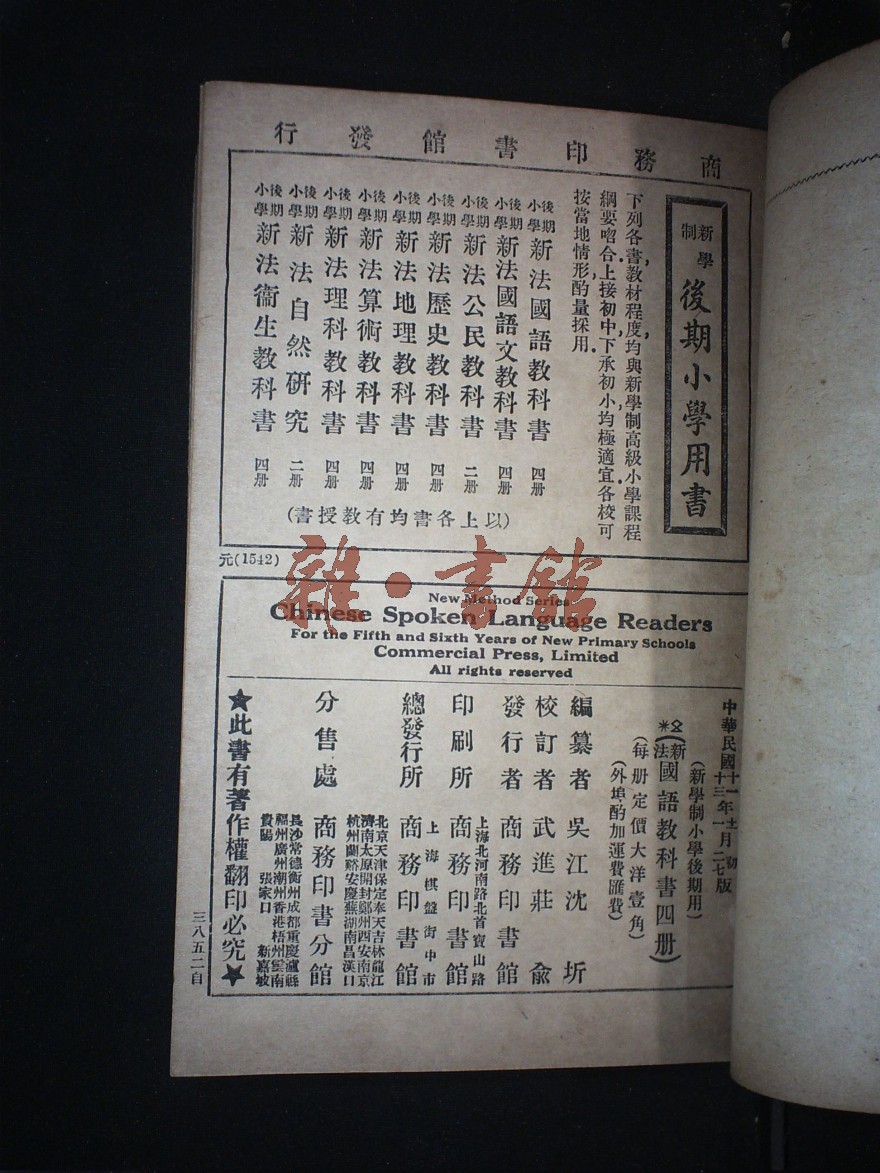 商務印書館發行
新學制
後期小學用書
下列各書教材程度均與新學制高級小學課程
綱要吻合上接初中下承初小均極適宜各校可
按當地情形酌量採用
後期小學 新法國語教科書 四册
後期小學 新法國語文教科書 四册
後期小學 新法公民教科書 二册
後期小學 新法歷史教科書 四册
後期小學 新法地理教科書 四册
後期小學 新法算術教科書 四册
後期小學 新法理科教科書 四册
後期小學 新法自然研究 二册
後期小學 新法衞生教科書 四册
(以上各書均有教授書)
元(1542)
雜·書館
New Method Series
Chinese Spoken Language Readers
For the Fifth and Sixth Years of New Primary Schools
Commercial Press, Limited
All rights reserved
中華民國十一年十二月初版
十三年一月二七版
(新學制小學後期用)
(新法國語教科書四册)
(每册定價大洋壹角)
(外埠酌加運費匯費)
編纂者 吳江沈圻
校訂者 武進莊俞
發行者 商務印書館
上海北河南路北首寶山路
印刷所 商務印書館
上海棋盤街中市
總發行所 商務印書館
北京天津保定奉天吉林龍江
濟南太原開封鄭州西安南京
杭州蘭谿安慶蕪湖南昌漢口
分售處 商務印書分館
長沙常德衡州成都重慶瀘縣
福州廣州潮州香港梧州雲南
貴陽 張家口 新嘉坡
★此書有著作權翻印必究★
三八五二自